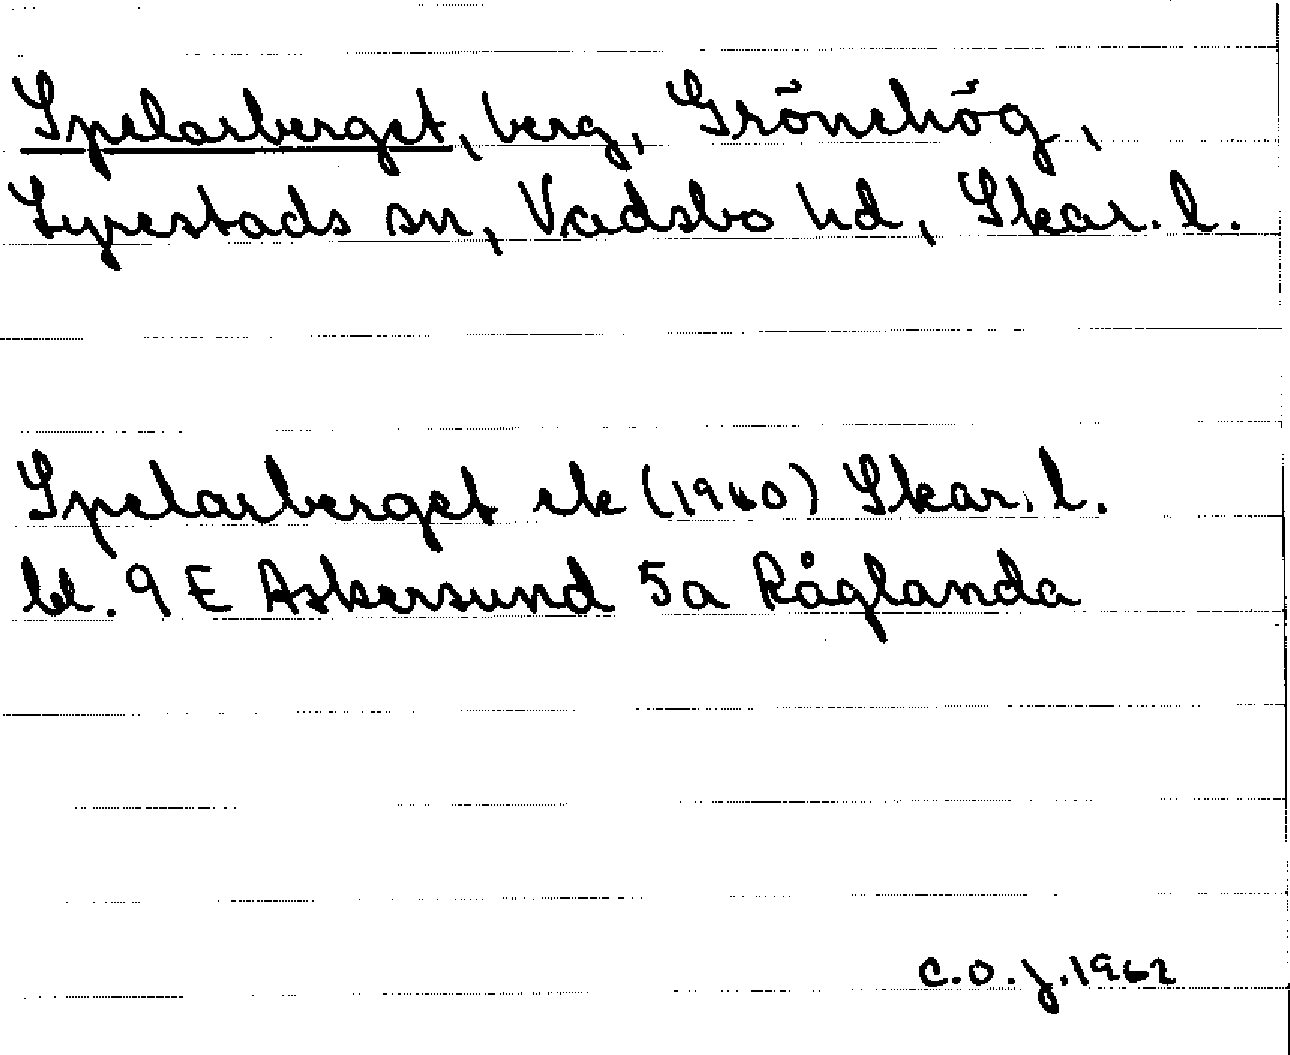 Spelarberget, berg, Grönehög,
Lyrestads sn, Vadsbo hd, Skar. l.
Spelarberget ek (1960) Skar. l.
bl. 9 E Askersund 5a Råglanda
C.O.J. 1962